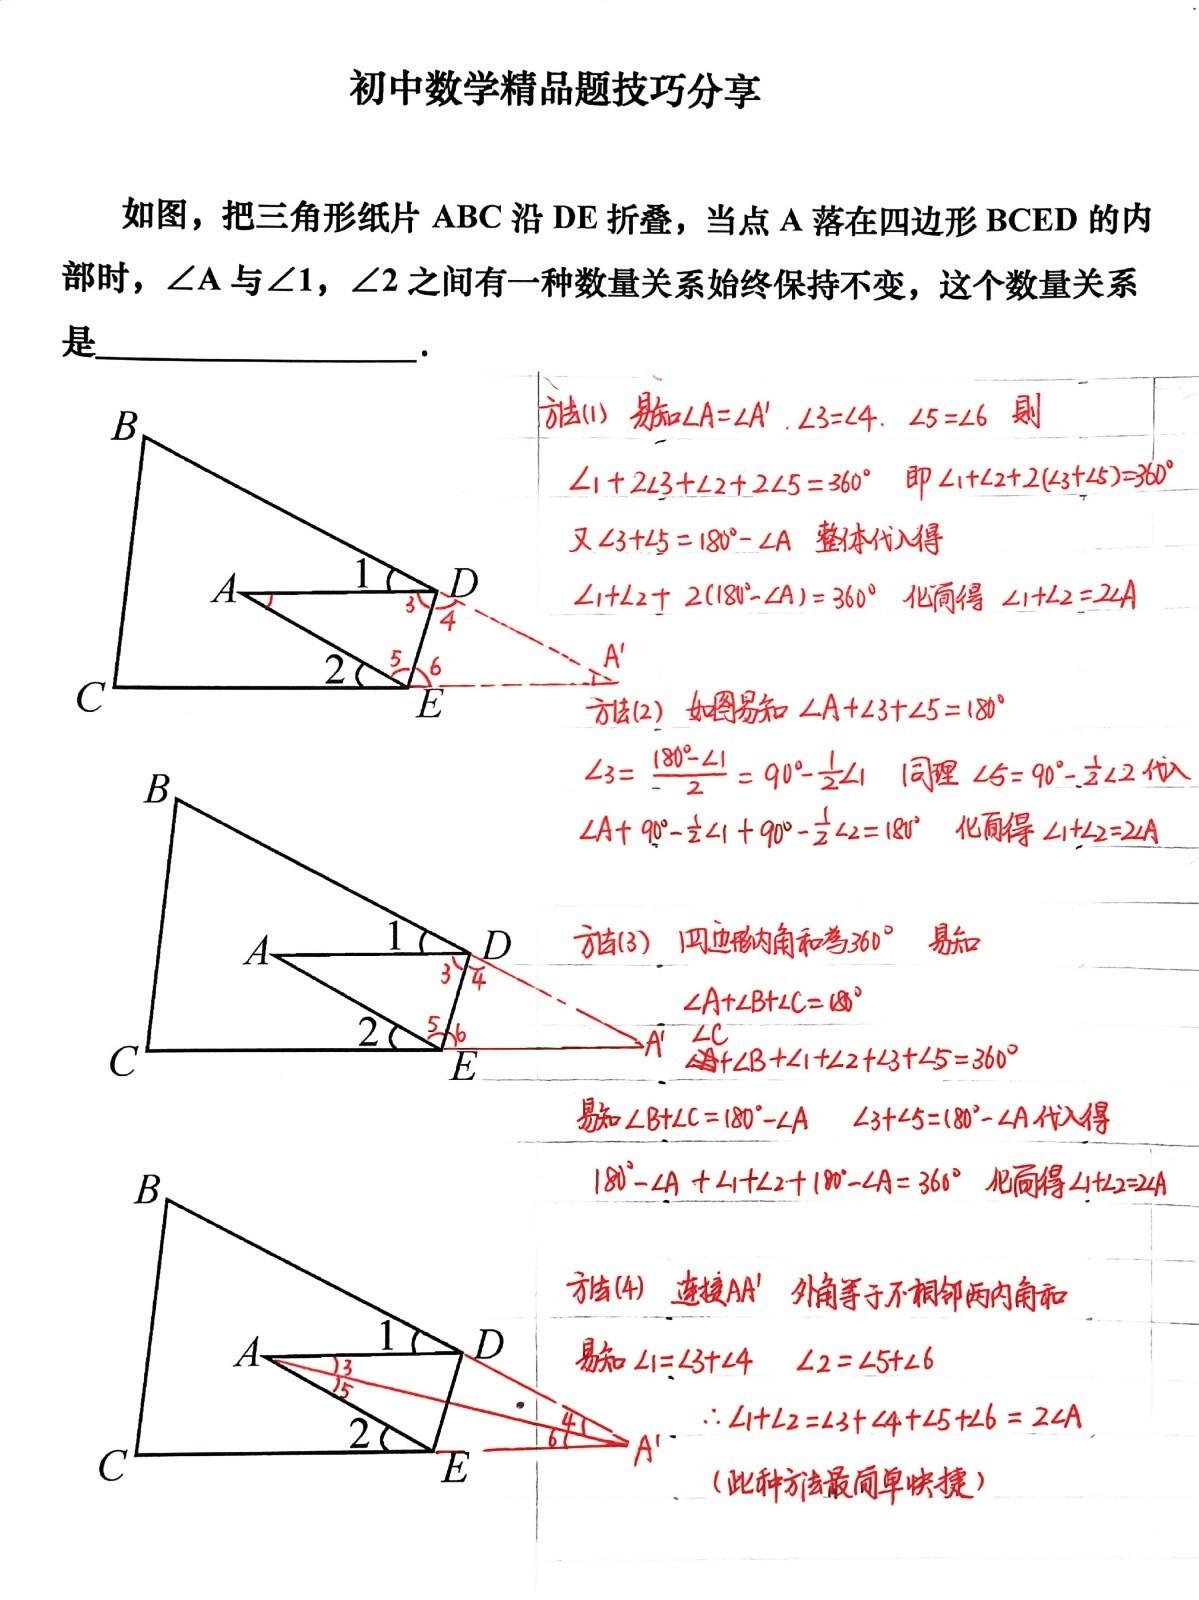 初中数学精品题技巧分享
如图，把三角形纸片 ABC 沿 DE 折叠，当点 A 落在四边形 BCED 的内
部时，∠A 与∠1，∠2 之间有一种数量关系始终保持不变，这个数量关系
是____________________．
方法(1) 易知∠A=∠A'．∠3=∠4．∠5=∠6 则
∠1+2∠3+∠2+2∠5=360° 即∠1+∠2+2(∠3+∠5)=360°
又∠3+∠5=180°-∠A 整体代入得
∠1+∠2+2(180°-∠A)=360° 化简得 ∠1+∠2=2∠A
B
A
1
D
3
4
2
5
6
A'
C
E
方法(2) 如图易知 ∠A+∠3+∠5=180°
∠3=(180°-∠1)/2=90°-1/2∠1 同理 ∠5=90°-1/2∠2 代入
∠A+90°-1/2∠1+90°-1/2∠2=180° 化简得 ∠1+∠2=2∠A
B
A
1
D
3
4
2
5
6
A'
C
E
方法(3) 四边形内角和为360° 易知
∠A+∠B+∠C=180°
∠C+∠B+∠1+∠2+∠3+∠5=360°
易知∠B+∠C=180°-∠A ∠3+∠5=180°-∠A代入得
180°-∠A+∠1+∠2+180°-∠A=360° 化简得∠1+∠2=2∠A
B
A
1
D
3
5
2
4
6
A'
C
E
方法(4) 连接AA' 外角等于不相邻两内角和
易知∠1=∠3+∠4 ∠2=∠5+∠6
∴∠1+∠2=∠3+∠4+∠5+∠6=2∠A
(此种方法最简单快捷)